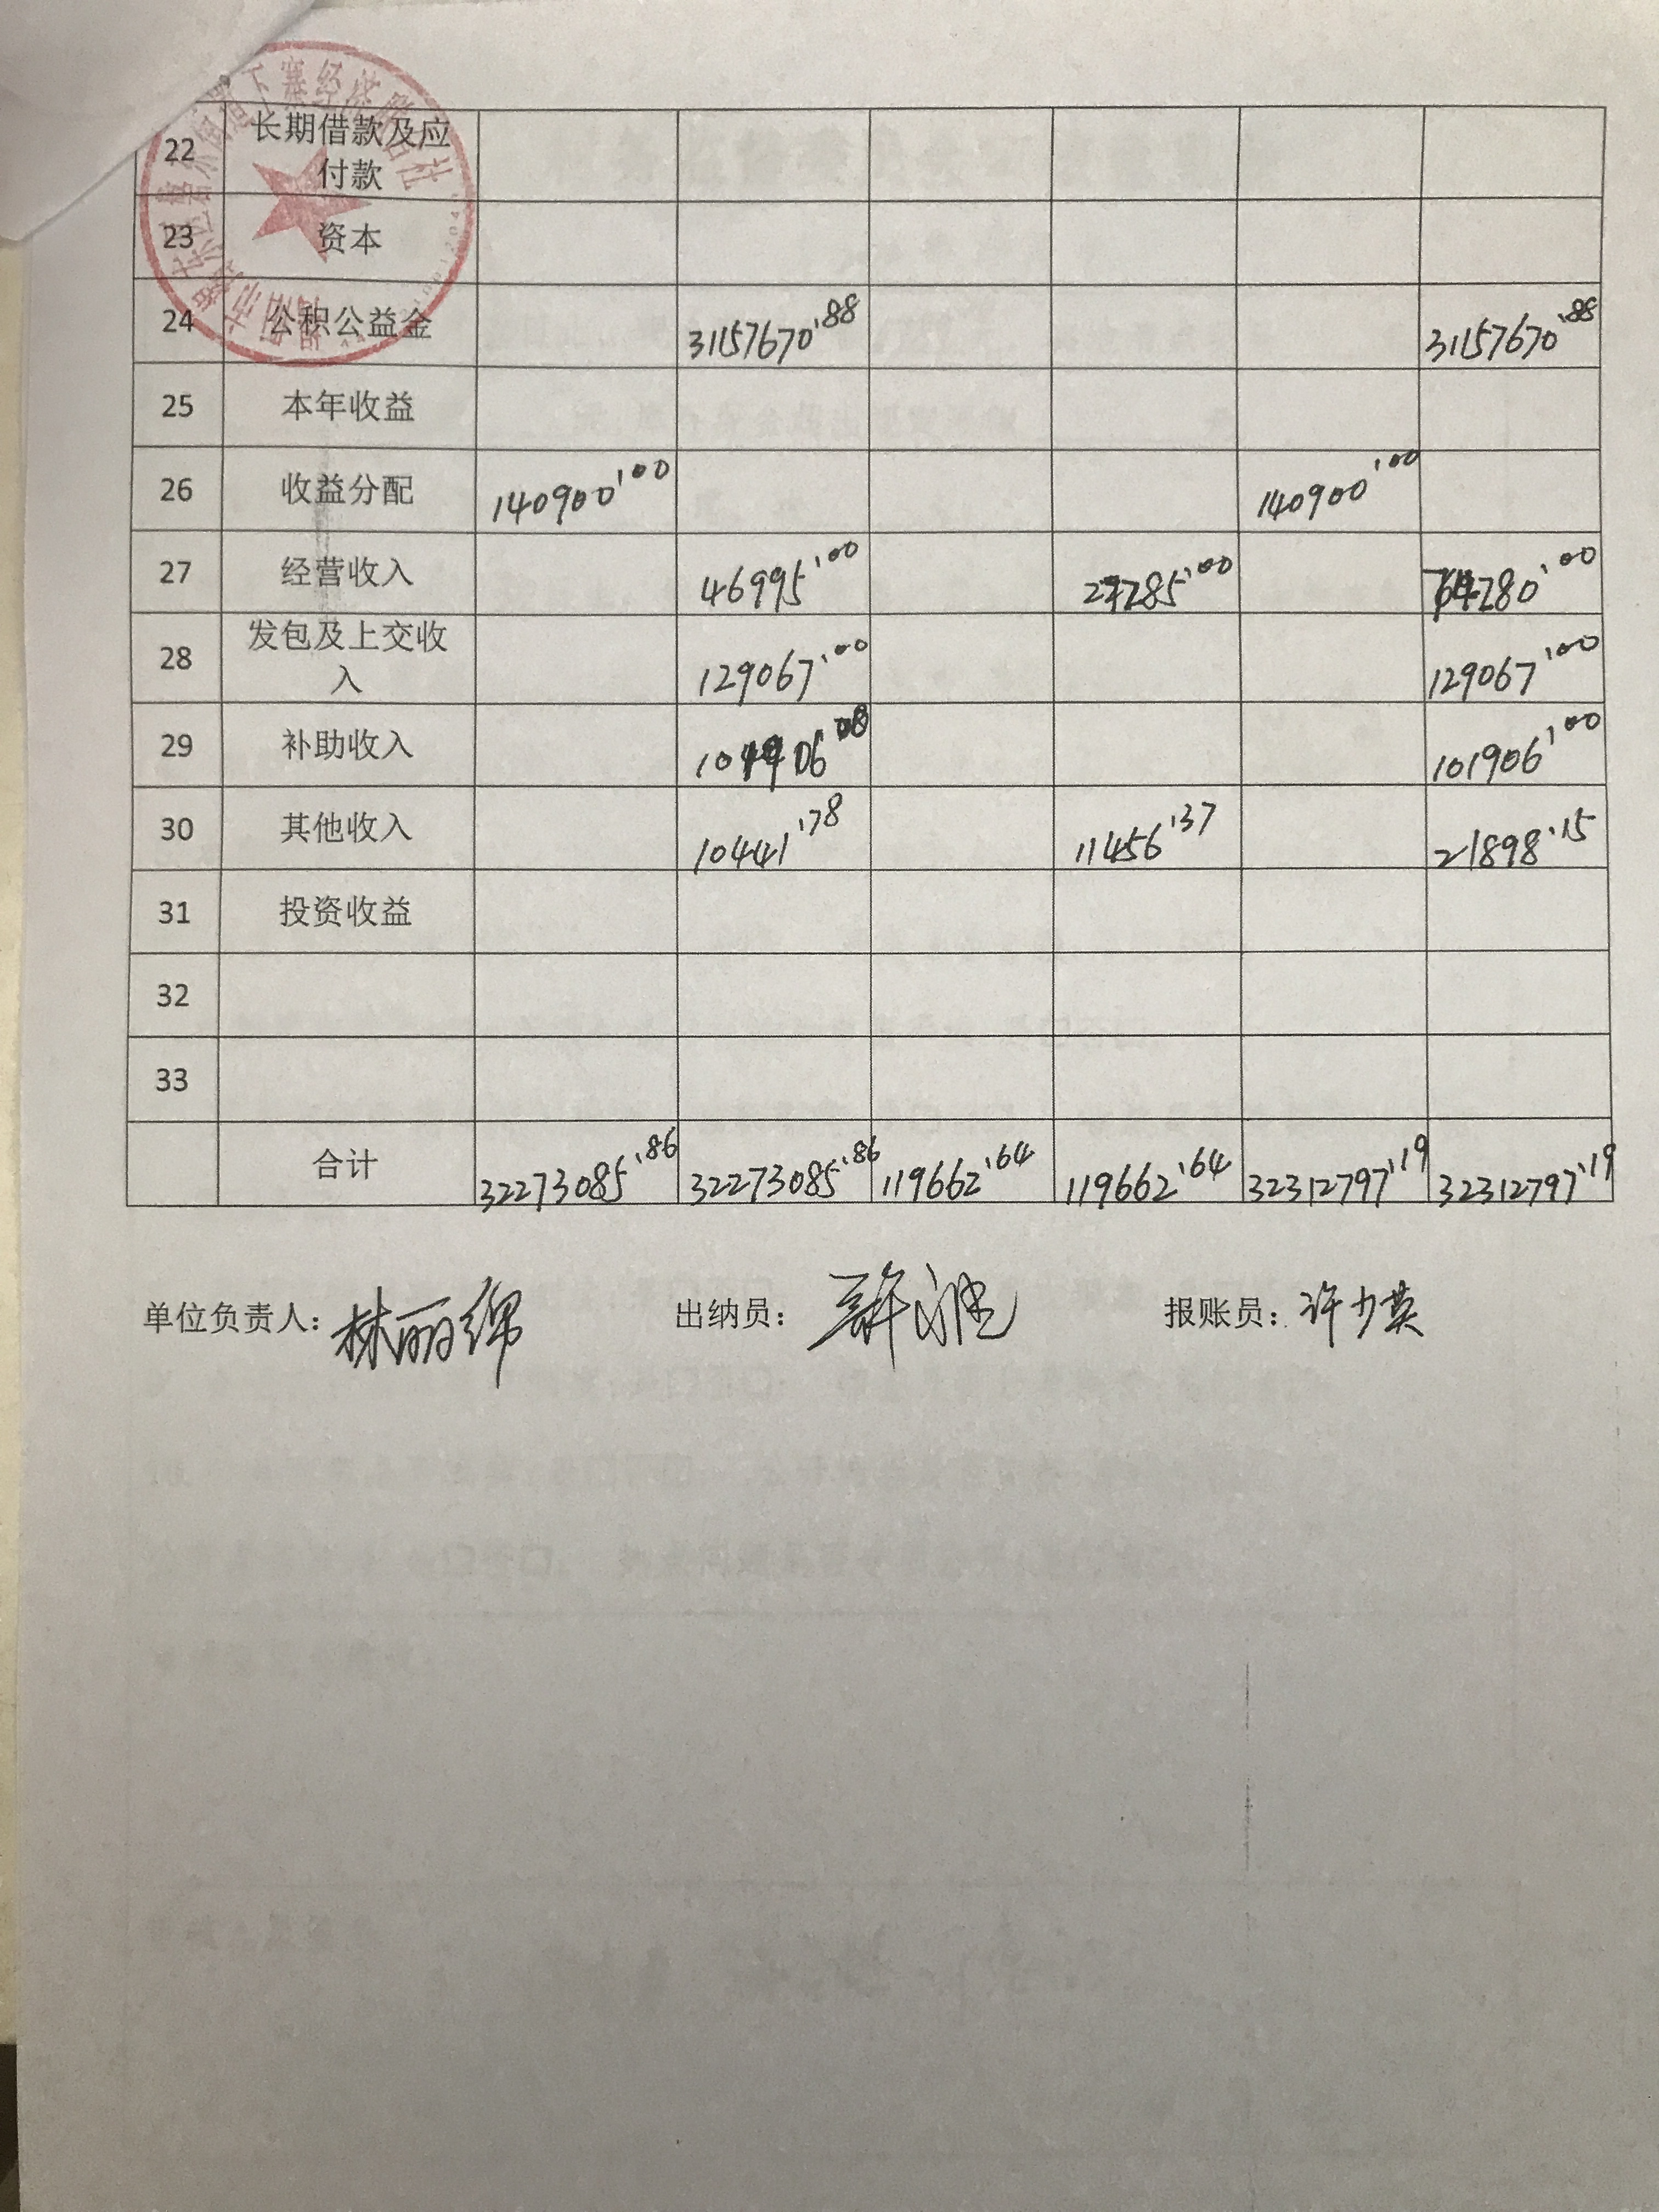 22 长期借款及应
付款
23 资本
24 公积公益金 31157670.88 31157670.88
25 本年收益
26 收益分配 140900.00 140900.00
27 经营收入 46995.00 27285.00 74280.00
28 发包及上交收
入 129067.00 129067.00
29 补助收入 101906.00 101906.00
30 其他收入 10441.78 11456.37 21898.15
31 投资收益
32
33
合计 32273085.86 32273085.86 119662.64 119662.64 32312797.19 32312797.19
单位负责人： 林丽绵 出纳员： 报账员： 许少英